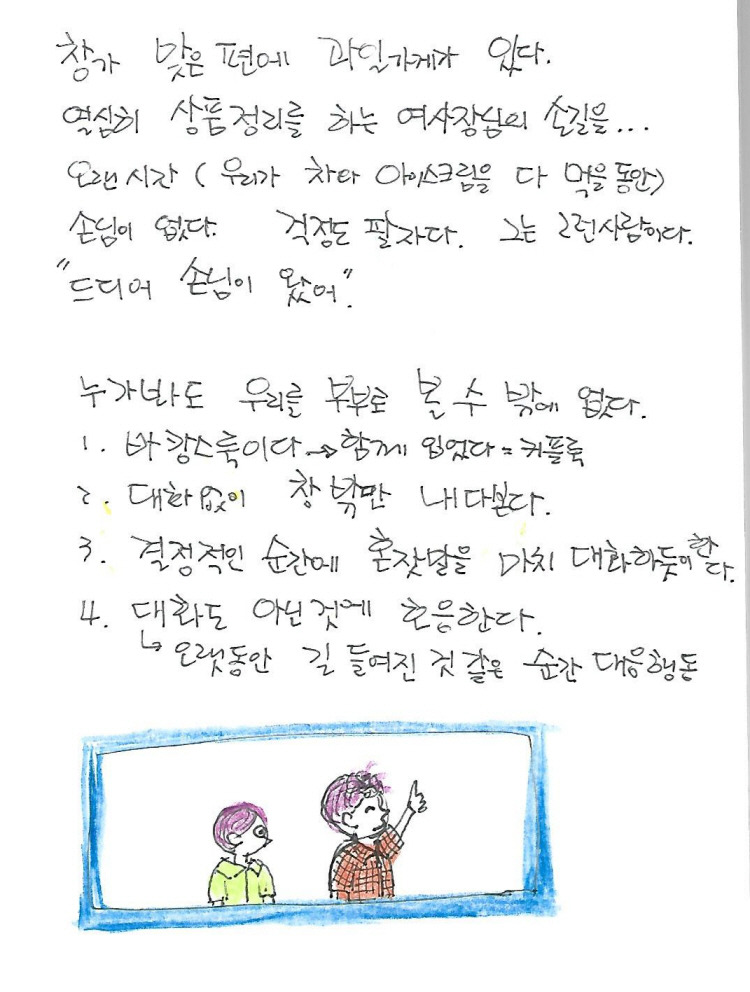 창가 맞은편에 과일가게가 있다.
열심히 상품정리를 하는 여사장님의 손길을...
오랜시간 ( 우리가 차와 아이스크림을 다 먹을동안)
손님이 없다. 걱정도 팔자다. 그는 그런사람이다.
"드디어 손님이 왔어".
누가봐도 우리를 부부로 볼 수 밖에 없다.
1. 바캉스룩이다 → 함께 입었다 = 커플룩
2. 대화없이 창밖만 내다본다.
3. 결정적인 순간에 혼잣말을 마치 대화하듯이한다.
4. 대화도 아닌것에 호응한다.
↳ 오랫동안 길들여진 것 같은 순간 대응행동